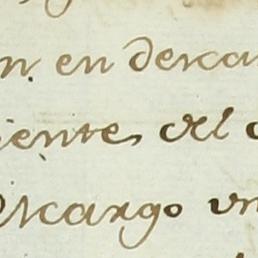 n. en desca
iente, del
escargo un